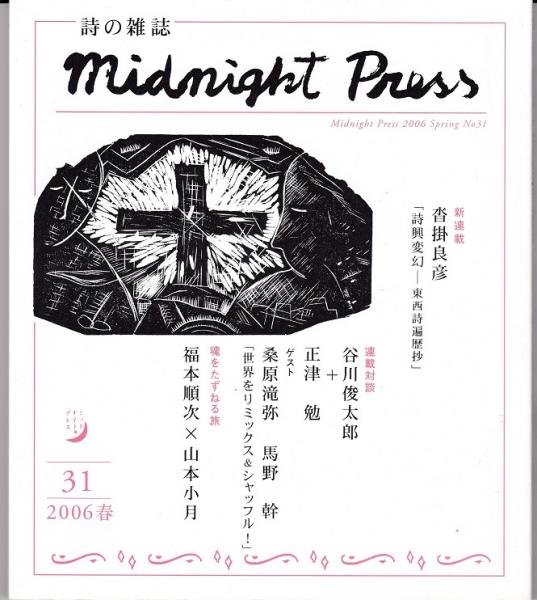 詩の雑誌
Midnight Press
Midnight Press 2006 Spring No31
新連載
沓掛良彦
「詩興変幻―東西詩遍歴抄」
連載対談
谷川俊太郎
+
正津 勉
ゲスト
桑原滝弥 馬野 幹
「世界をリミックス&シャッフル!」
魂をたずねる旅
福本順次×山本小月
ミッド
ナイト・
プレス
31
2006春